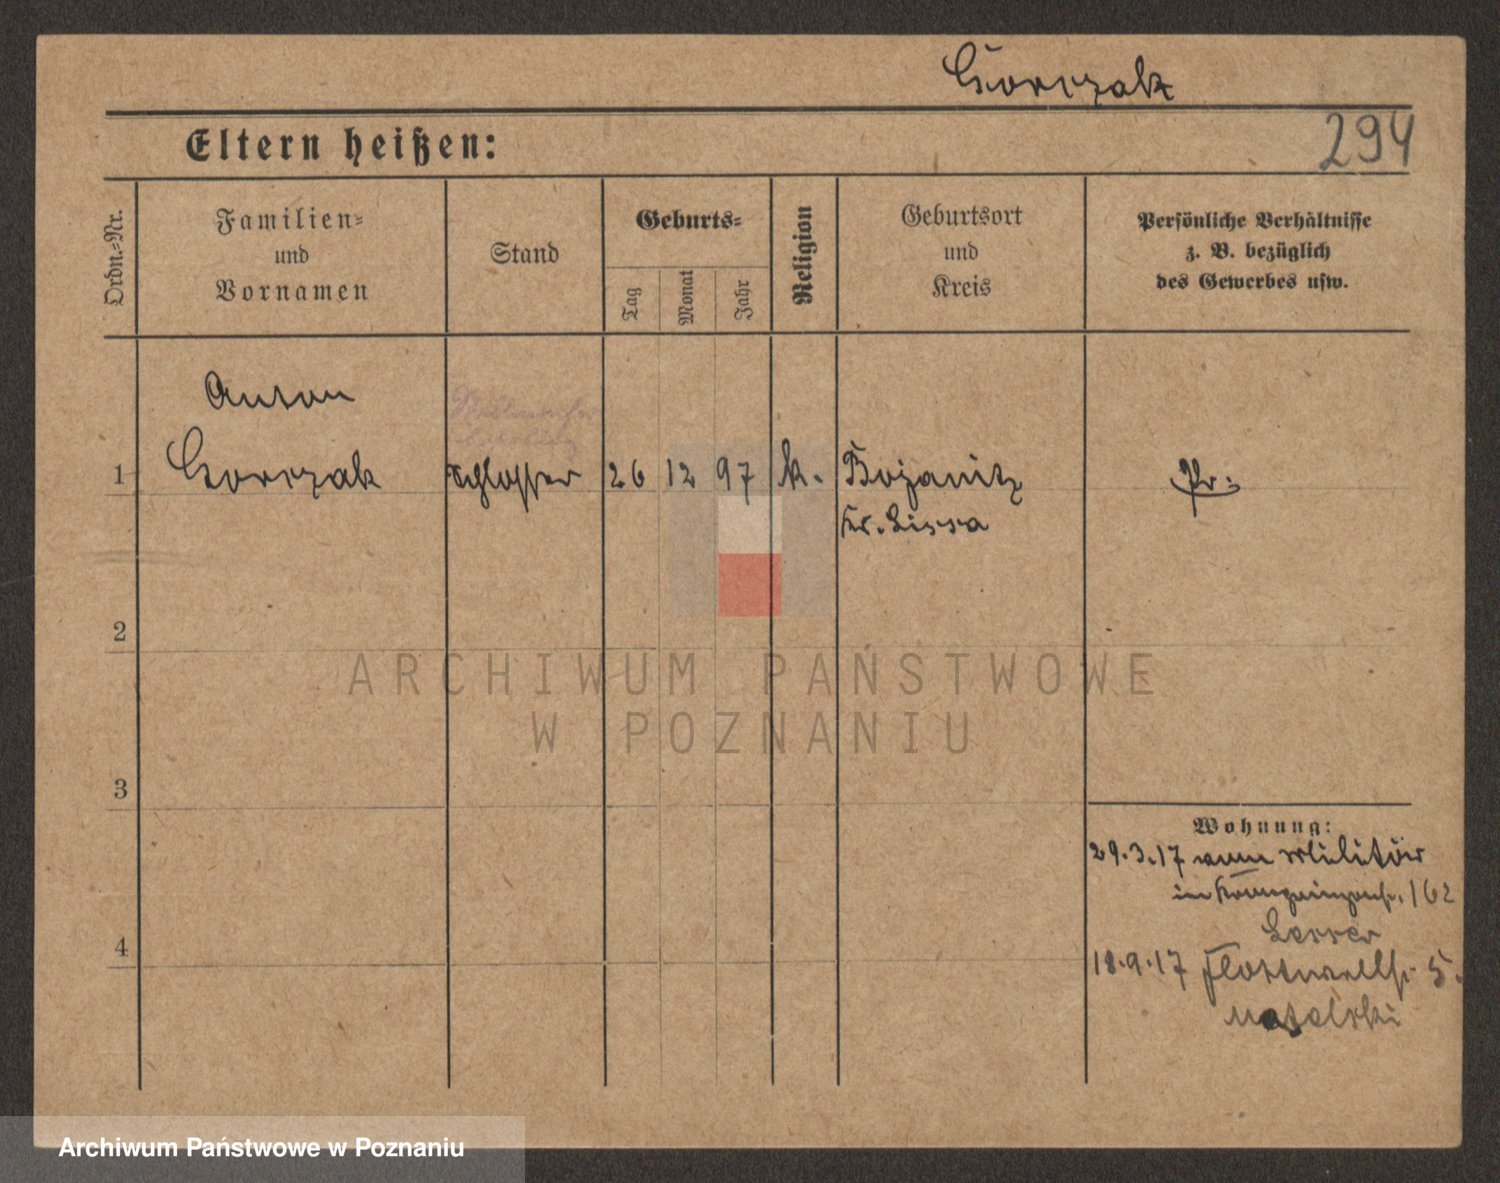 Gorczak
Eltern heißen:
294
Ordn.=Nr.
Familien=
und
Vornamen
Stand
Geburts=
Tag
Monat
Jahr
Religion
Geburtsort
und
Kreis
Persönliche Verhältnisse
z. B. bezüglich
des Gewerbes usw.
Anton
1 Gorczak Schlosser 26 12 97 k. Bojanitz Pr:
Kr. Lissa
2
3
4
Wohnung:
29.3.17 vom Militär
in Kronprinzenstr. 162
Lesser
18.9.17 Flottwellstr 5.
Matalski
ARCHIWUM PAŃSTWOWE
W POZNANIU
Archiwum Państwowe w Poznaniu